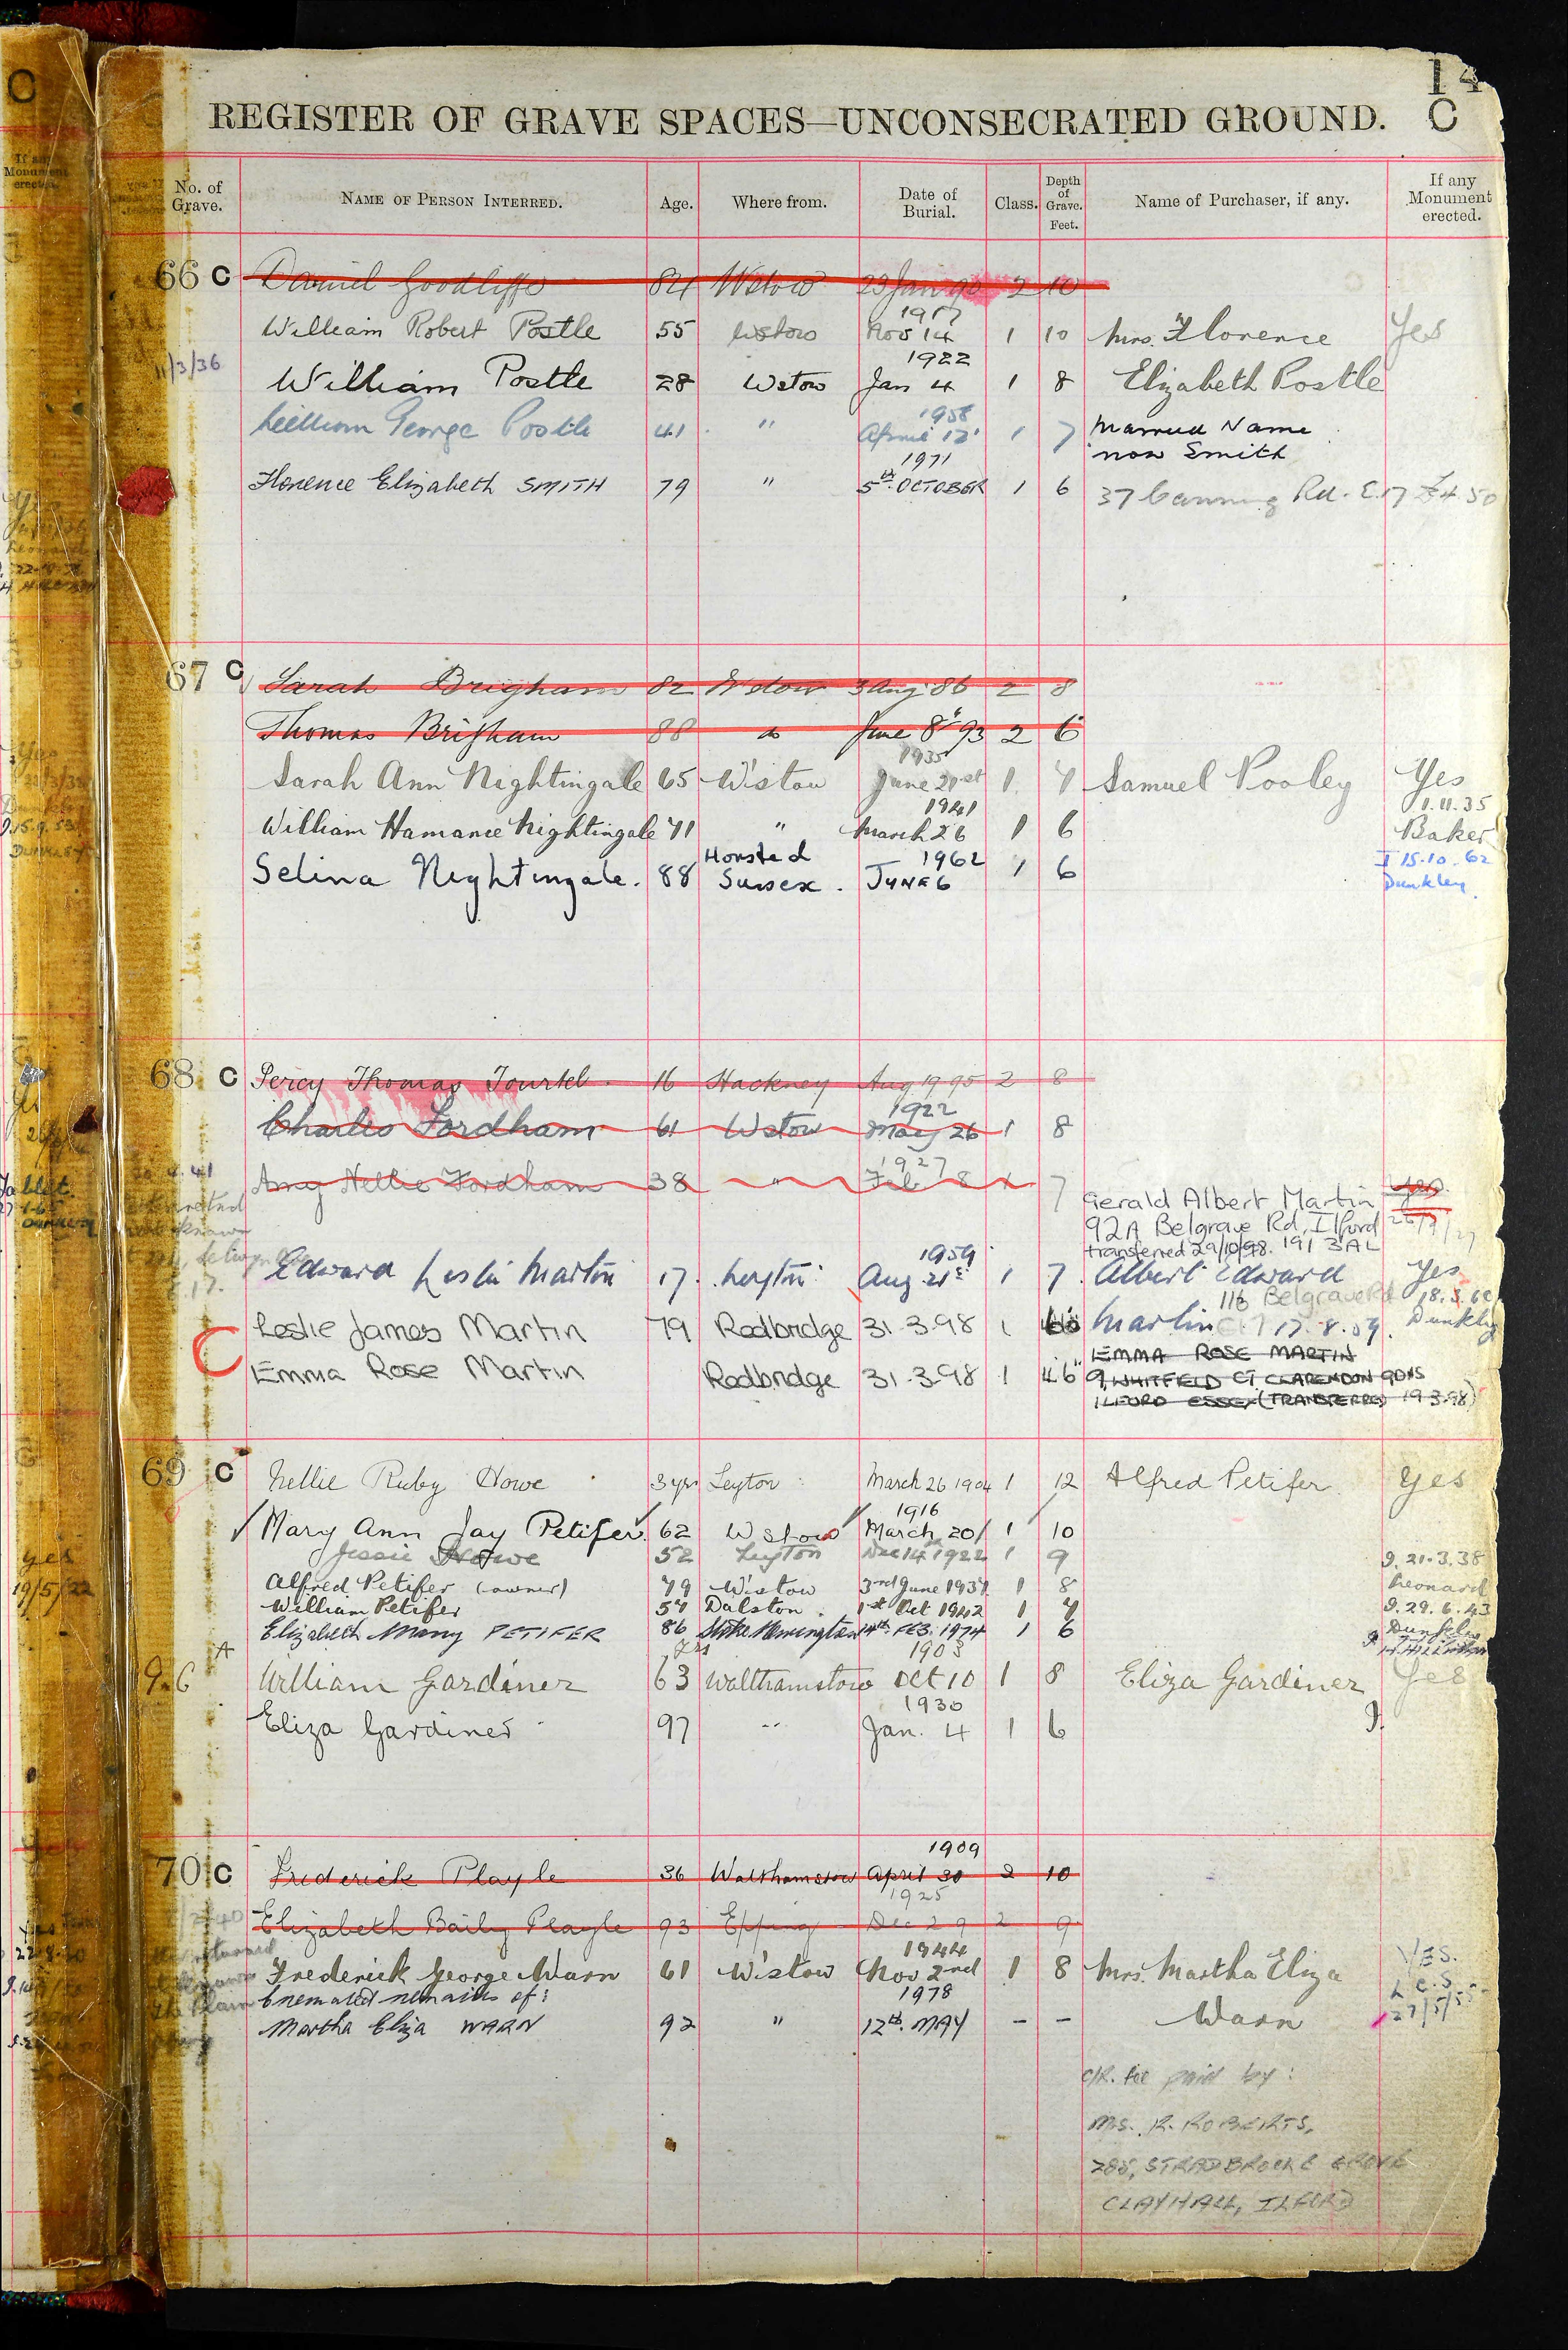 14
REGISTER OF GRAVE SPACES—UNCONSECRATED GROUND. C
No. of Grave. NAME OF PERSON INTERRED. Age. Where from. Date of Burial. Class. Depth of Grave. Feet. Name of Purchaser, if any. If any Monument erected.
66 C Daniel Goodliffe 84 Wstow 23 Jan 90 2 10
1917
William Robert Postle 55 Wstow Nov 14 1 10 Mrs. Florence Yes
11/3/36
1922
William Postle 28 Wstow Jan 4 1 8 Elizabeth Postle
1958
William George Postle 41 " April 12 1 7 Married Name
now Smith
1971
Florence Elizabeth SMITH 79 " 5th OCTOBER 1 6 37 Canning Rd. E.17 £4.50
67 C Sarah Brigham 82 Wstow 3 Aug 86 2 8
Thomas Brigham 88 do June 8" 93 2 6
1935
Sarah Ann Nightingale 65 W'stow June 21st 1 7 Samuel Pooley Yes
1.11.35
1941
William Hamance Nightingale 71 " March 26 1 6 Baker
Selina Nightingale. 88 Horsted Sussex. 1962 JUNE 6 1 6 I 15.10.62
Dunkley.
68 C Percy Thomas Tourtel 16 Hackney Aug 19 95 2 8
1922
Charles Fordham 61 Wstow May 26 1 8
1927
Amy Nellie Fordham 38 " Feb 8 1 7
Gerald Albert Martin Yes
92A Belgrave Rd, Ilford
transferred 29/10/98. 191 3AL
1959
Edward Leslie Martin 17. Leyton Aug 21st 1 7. Albert Edward Yes
116 Belgrave Rd 18.3.60
Leslie James Martin 79 Redbridge 31.3.98 1 Martin 17.8.59. Dunkley
Emma Rose Martin Redbridge 31.3.98 1 4'6" EMMA ROSE MARTIN
9, WHITFIELD CT CLARENDON GDNS
ILFORD ESSEX (TRANSFERRED 19.3.98)
69 C Nellie Ruby Howe 3 yrs Leyton March 26 1904 1 12 Alfred Petifer Yes
1916
Mary Ann Jay Petifer 62 Wstow March 20 1 10
Jessie Howe 52 Leyton Dec 14th 1922 1 9 I. 21.3.38
Alfred Petifer (owner) 79 W'stow 3rd June 1937 1 8 Leonard
William Petifer 57 Dalston. 1st Oct 1942 1 7 I. 29.6.43
Elizabeth Mary PETIFER 86 Stoke Newington 14th FEB. 1974 1 6 Dunkley
A yrs 1903
William Gardiner 63 Walthamstow Oct 10 1 8 Eliza Gardiner Yes
1930
Eliza Gardiner 97 " Jan. 4 1 6
1909
70 C Frederick Playle 36 Walthamstow April 30 2 10
1925
Elizabeth Baily Playle 93 Epping Dec 29 2 9
1944
Frederick George Warn 61 W'stow Nov 2nd 1 8 Mrs. Martha Eliza YES.
Cremated remains of: 1978
Martha Eliza WARN 92 " 12th. MAY – – Warn 27/5/55
C/R. fee paid by:
MRS. R. ROBERTS,
288, STRADBROOKE GROVE
CLAYHALL, ILFORD